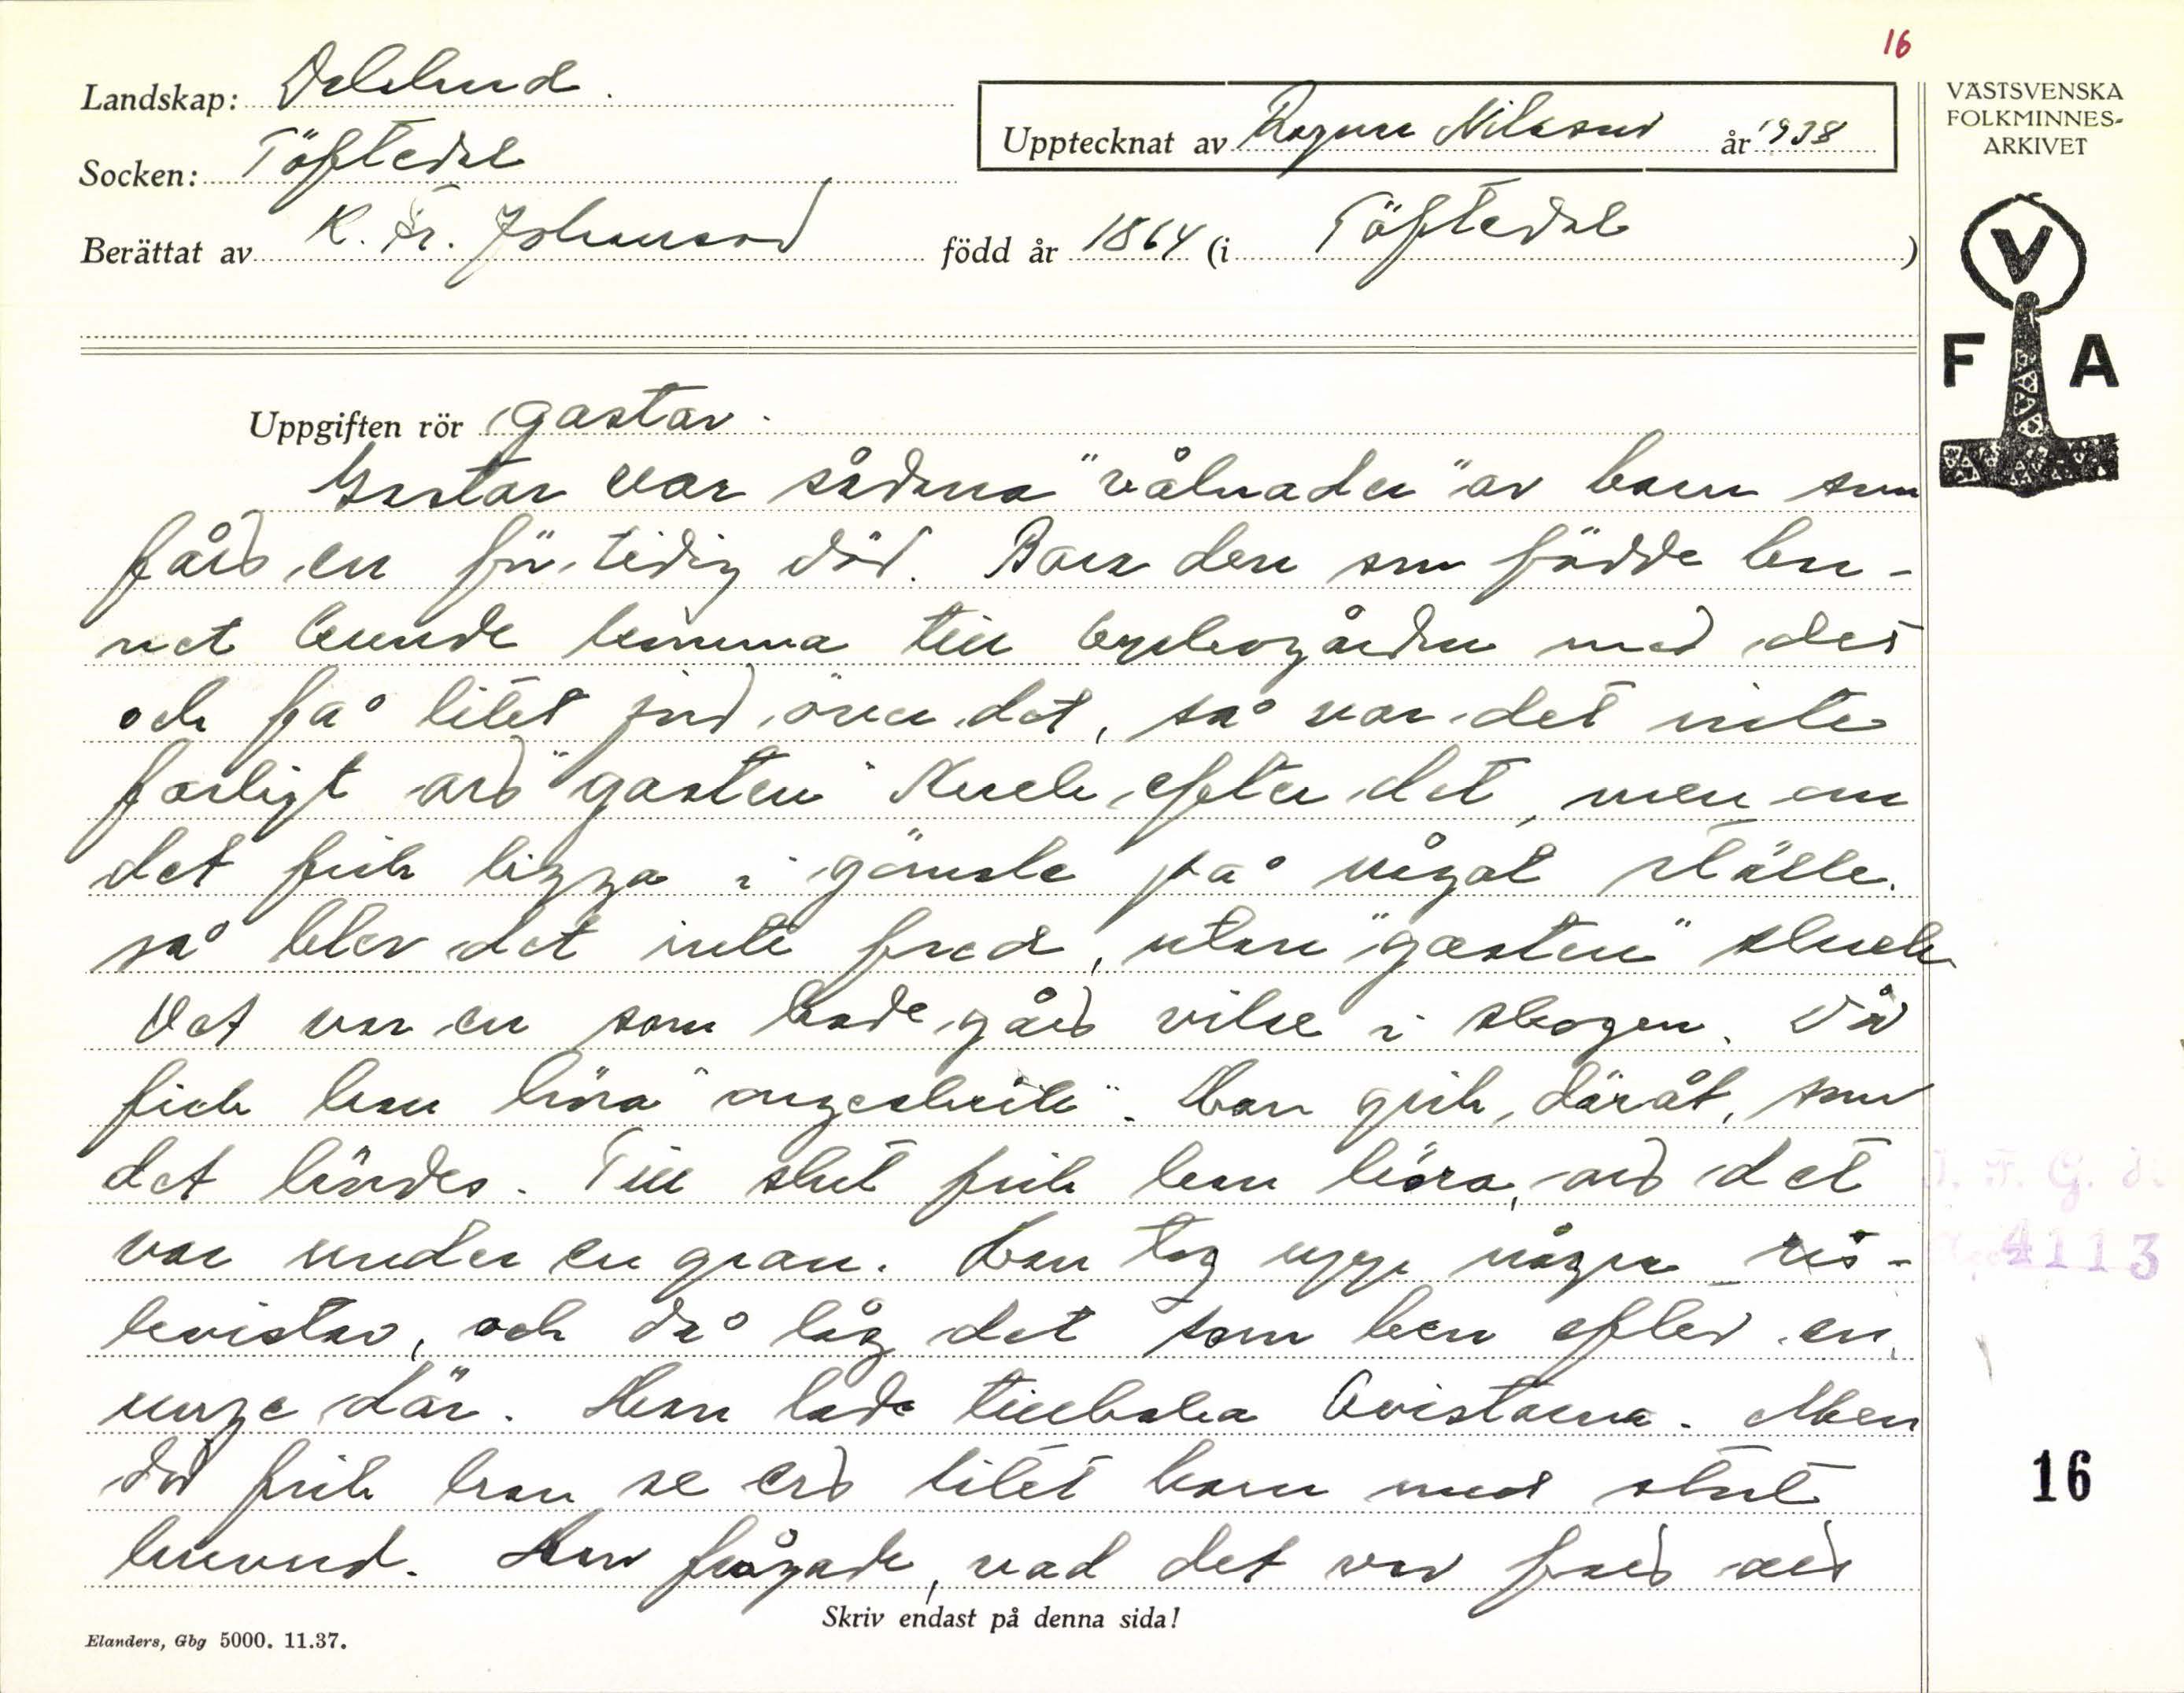 16
Landskap: Dalsland
Socken: Töftedal
Berättat av K. Fr. Johansson född år 1864 (i Töftedal)
Upptecknat av Ragnar Nilsson år 1938
VÄSTSVENSKA
FOLKMINNES-
ARKIVET
V
F A
Uppgiften rör gastar.
Gastar var sådana "vålnader" av barn som
fått en för tidig död. Bara den som födde bar-
net kunde komma till kyrkogården med det
och få litet jord över det, så var det inte
farligt att "gasten" skrek efter det, men om
det fick ligga i gömsle på något ställe.
så blev det inte fred, utan "gasten" skrek
Det var en som hade gått vilse i skogen. Då
fick han höra "ungeskrik". Han gick, däråt, som
det hördes. Till slut fick han höra, att det
var under en gran. Han tog upp några ris-
kvistar, och då låg det som ben efter en
unge där. Han lade tillbaka kvistarna. Men
då fick han se ett litet barn med stut
huvud. Han frågade, vad det var fatt att
Skriv endast på denna sida!
Elanders, Gbg 5000. 11.37.
I. F. G. H.
4113
16